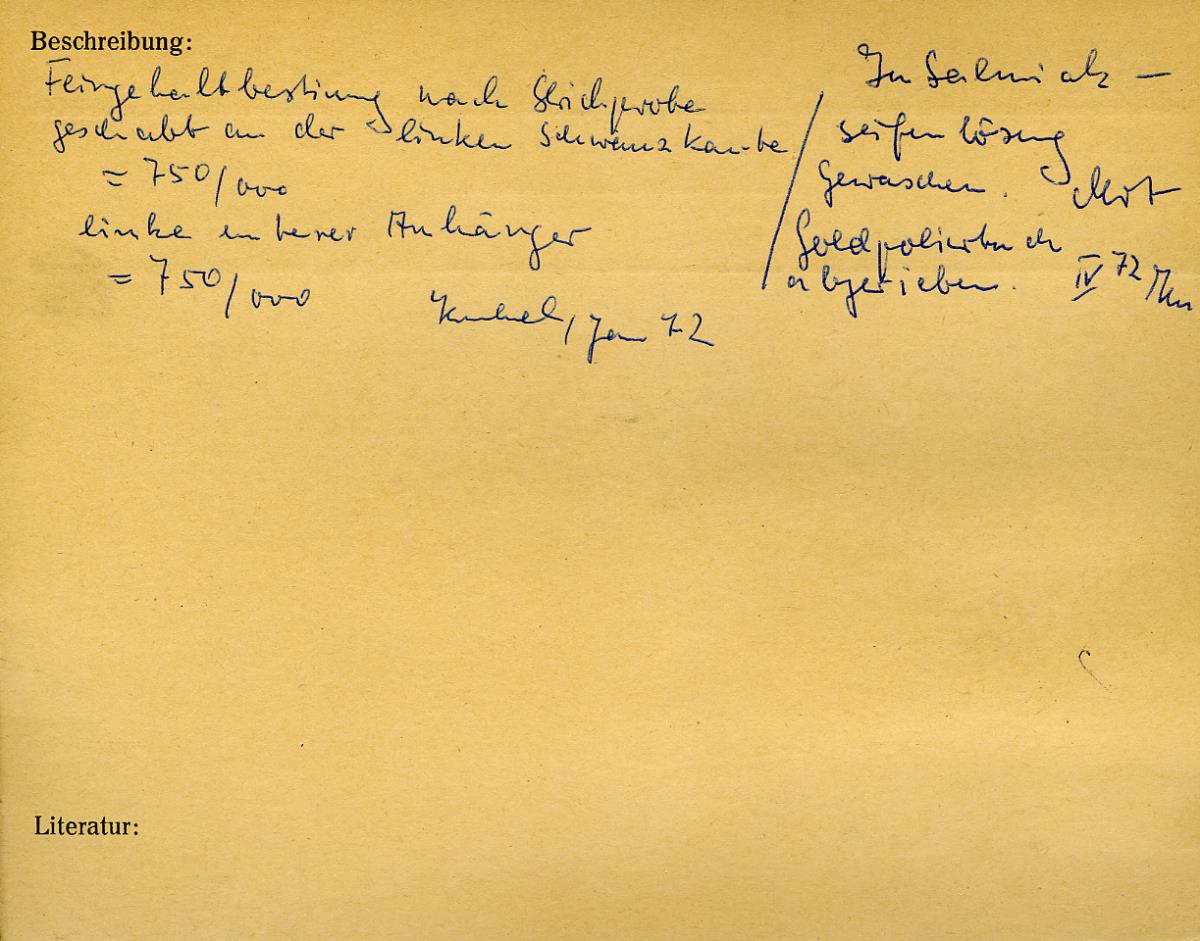 Beschreibung:
Feingehaltbestimg nach Strichprobe
geschabt an der linken Schwanzkante
= 750/000
linke unterer Anhänger
= 750/000
Jan 72
In Salmiak-
seifenlösung
gewaschen. Mit
Goldpoliertuch
abgerieben. IV 72/
Literatur: